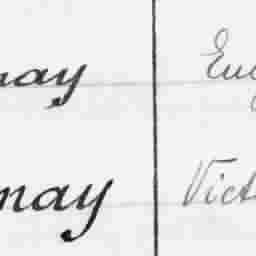 nay Eug
nay Vict